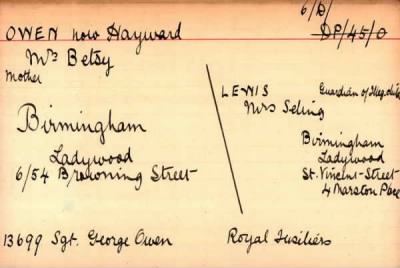 6/D/
OWEN now Hayward
DP/45/O
Mrs Betsy
Mother
LEWIS Guardian of Illeg. child
Mrs Selina
Birmingham
Ladywood
6/54 Browning Street
Birmingham
Ladywood
St. Vincent-Street
4 Marston Place
13699 Sgt. George Owen
Royal Fusiliers